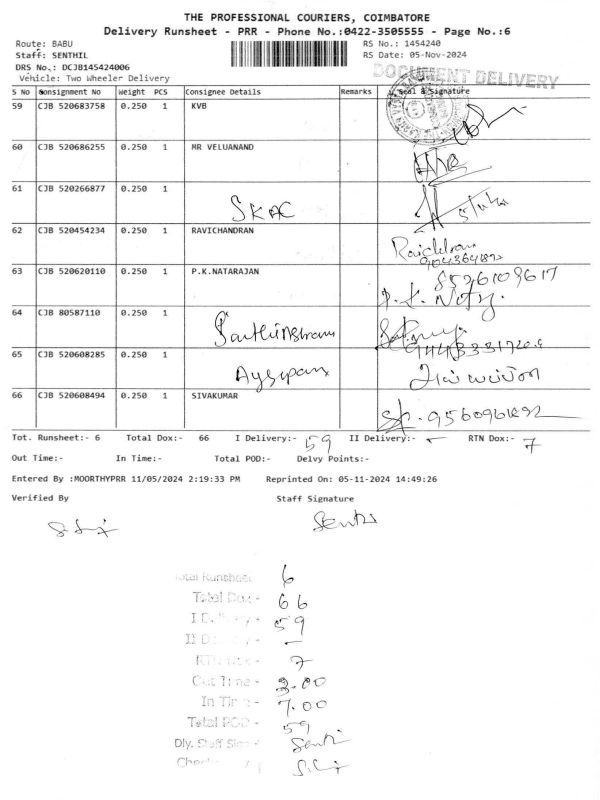 THE PROFESSIONAL COURIERS, COIMBATORE
Delivery Runsheet - PRR - Phone No.:0422-3505555 - Page No.:6
Route: BABU RS No.: 1454240
Staff: SENTHIL RS Date: 05-Nov-2024
DRS No.: DCJB145424006
DOCUMENT DELIVERY
Vehicle: Two Wheeler Delivery
S No Consignment No Weight PCS Consignee Details Remarks Seal & Signature
59 CJB 520683758 0.250 1 KVB
60 CJB 520686255 0.250 1 MR VELUANAND
61 CJB 520266877 0.250 1 SKAC
62 CJB 520454234 0.250 1 RAVICHANDRAN
63 CJB 520620110 0.250 1 P.K.NATARAJAN 8526109617
64 CJB 80587110 0.250 1
65 CJB 520608285 0.250 1
66 CJB 520608494 0.250 1 SIVAKUMAR
Tot. Runsheet:- 6 Total Dox:- 66 I Delivery:- 59 II Delivery:- - RTN Dox:- 7
Out Time:- In Time:- Total POD:- Delvy Points:-
Entered By :MOORTHYPRR 11/05/2024 2:19:33 PM Reprinted On: 05-11-2024 14:49:26
Verified By Staff Signature
Total Runsheet 6
Total Dox - 66
I D 59
II D -
RTN 7
Out Time - 3.00
In Time - 7.00
Total POD - 59
Dly. Staff Sign